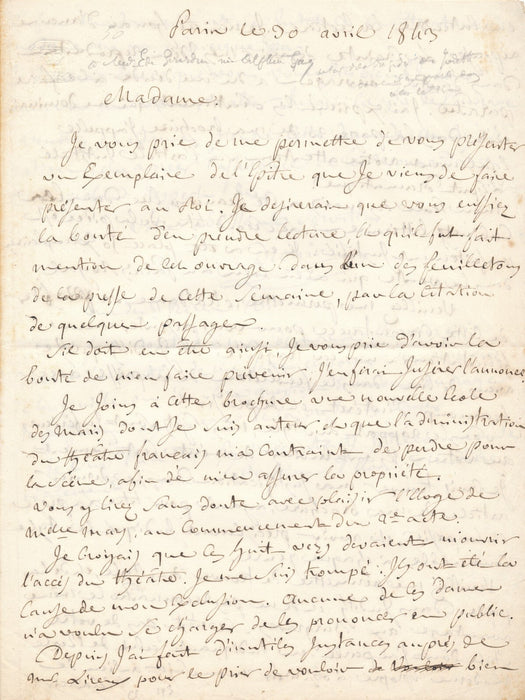 Paris le 30 avril 1843
Madame.
Je vous prie de me permettre de vous présenter
un Exemplaire de l'Epitre que Je viens de faire
présenter au Roi. Je desirerais que vous eussiez
la bonté d'en prendre lecture, et qu'il fut fait
mention de cet ouvrage dans l'un des feuilletons
de la presse de cette Semaine, par la Citation
de quelques passages.
S'il doit en être ainsi, Je vous prie d'avoir la
bonté de m'en faire prévenir J'en ferai Insérer l'annonce
Je Joins à cette brochure une nouvelle Ecole
des Maris dont Je suis auteur, et que l'administration
du théâtre français m'a Contraint de perdre pour
la Scène, afin de m'en assurer la propriété.
vous y lirez sans doute avec plaisir l'Eloge de
Mdelle Mars, au Commencement du 2e acte.
Je Croyais que ces huit vers devaient m'ouvrir
l'accès du théâtre. Je me suis trompé. Ils ont été la
Cause de mon Exclusion. aucune de ces Dames
n'a voulu se charger de les prononcer en public.
Depuis J'ai fait d'inutiles Instances auprès de
pour le prier de vouloir bien